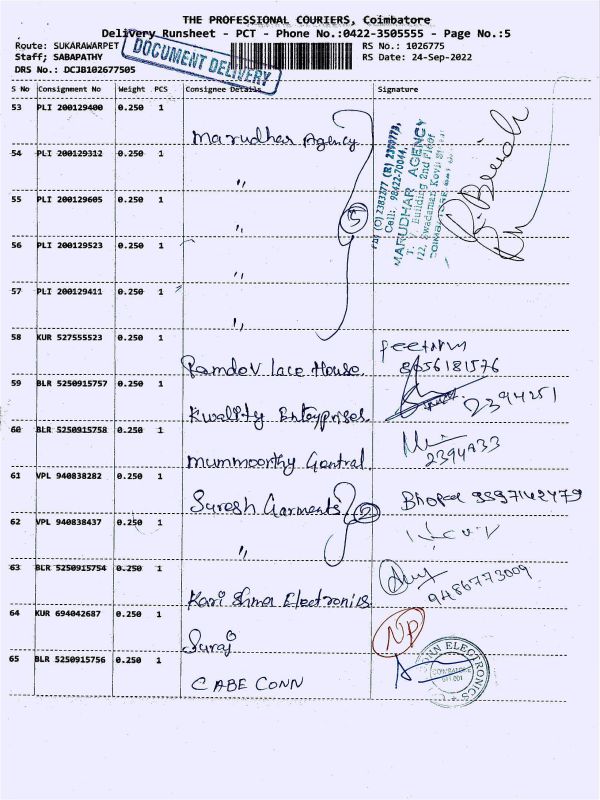 THE PROFESSIONAL COURIERS, Coimbatore
Delivery Runsheet - PCT - Phone No.:0422-3505555 - Page No.:5
Route: SUKARAWARPET
RS No.: 1026775
Staff; SABAPATHY
RS Date: 24-Sep-2022
DRS No.: DCJB102677505
DOCUMENT DELIVERY
S No Consignment No Weight PCS Consignee Details Signature
53 PLI 200129400 0.250 1
Marudhar Agency
54 PLI 200129312 0.250 1
"
55 PLI 200129605 0.250 1
"
5
56 PLI 200129523 0.250 1
"
57 PLI 200129411 0.250 1
"
MARUDHAR AGENCY
58 KUR 527555523 0.250 1
Ramdev lace House
8056181576
59 BLR 5250915757 0.250 1
Kwality Enterprises
2394251
60 BLR 5250915758 0.250 1
Mummoorthy Gentral
2394933
61 VPL 940838282 0.250 1
Suresh Garments
2
62 VPL 940838437 0.250 1
"
63 BLR 5250915754 0.250 1
Karishma Electronics
9486773009
64 KUR 694042687 0.250 1
Suraj
NP
65 BLR 5250915756 0.250 1
CABE CONN
CONN ELECTRONICS